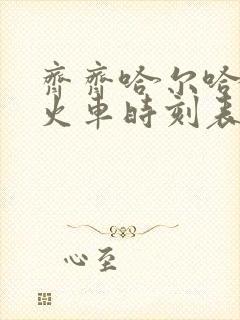 齊齊哈尔哈
火車時刻表
心至